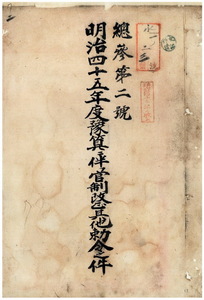 總參第二號
明治四十五年度豫算ニ伴官制改正其他勅令ノ件